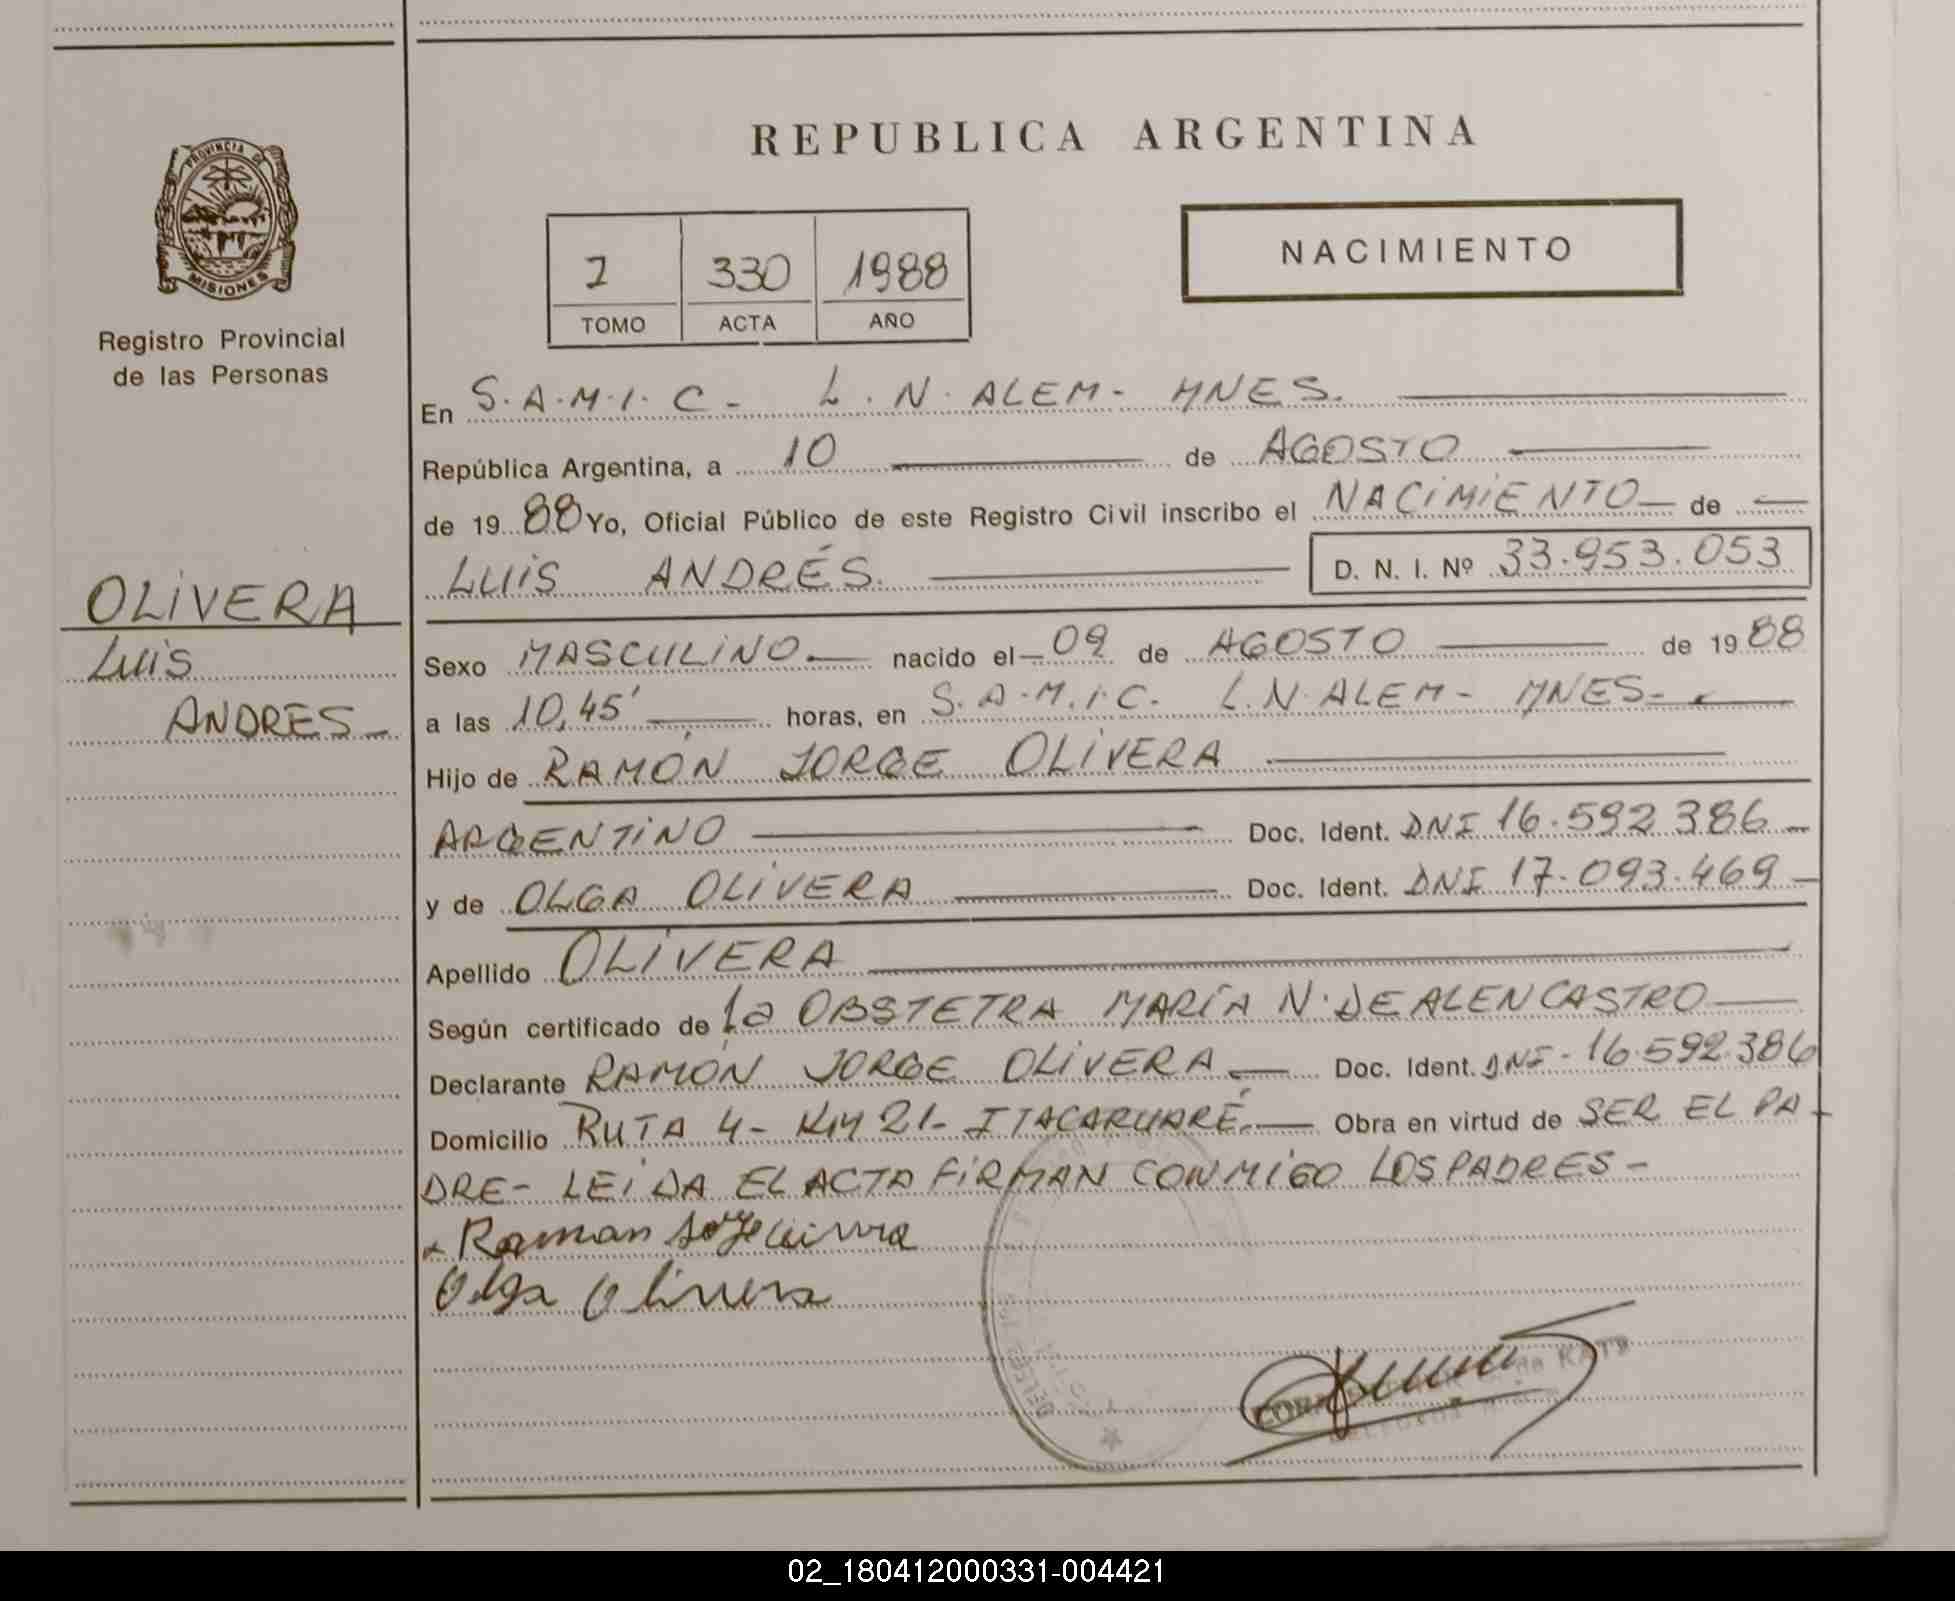 PROVINCIA DE
MISIONES
Registro Provincial
de las Personas
OLIVERA
LUIS
ANDRES
REPUBLICA ARGENTINA
330 1988
TOMO ACTA AÑO
NACIMIENTO
En S.A.M.I.C - L.N. ALEM - MNES.
República Argentina, a 10 de AGOSTO
de 19 88 Yo, Oficial Público de este Registro Civil inscribo el NACIMIENTO de
LUIS ANDRÉS. D. N. I. Nº 33.953.053
Sexo MASCULINO nacido el 09 de AGOSTO de 19 88
a las 10,45' horas, en S.A.M.I.C. L.N. ALEM - MNES-
Hijo de RAMÓN JORGE OLIVERA
ARGENTINO Doc. Ident. DNI 16.592.386
y de OLGA OLIVERA Doc. Ident. DNI 17.093.469
Apellido OLIVERA
Según certificado de la OBSTETRA MARÍA N. DE ALENCASTRO
Declarante RAMÓN JORGE OLIVERA Doc. Ident. DNI - 16.592.386
Domicilio RUTA 4 - KM 21 - ITACARUARÉ. Obra en virtud de SER EL PA-
DRE - LEIDA EL ACTA FIRMAN CONMIGO LOS PADRES -
Ramon
Olga Olivera
02_180412000331-004421